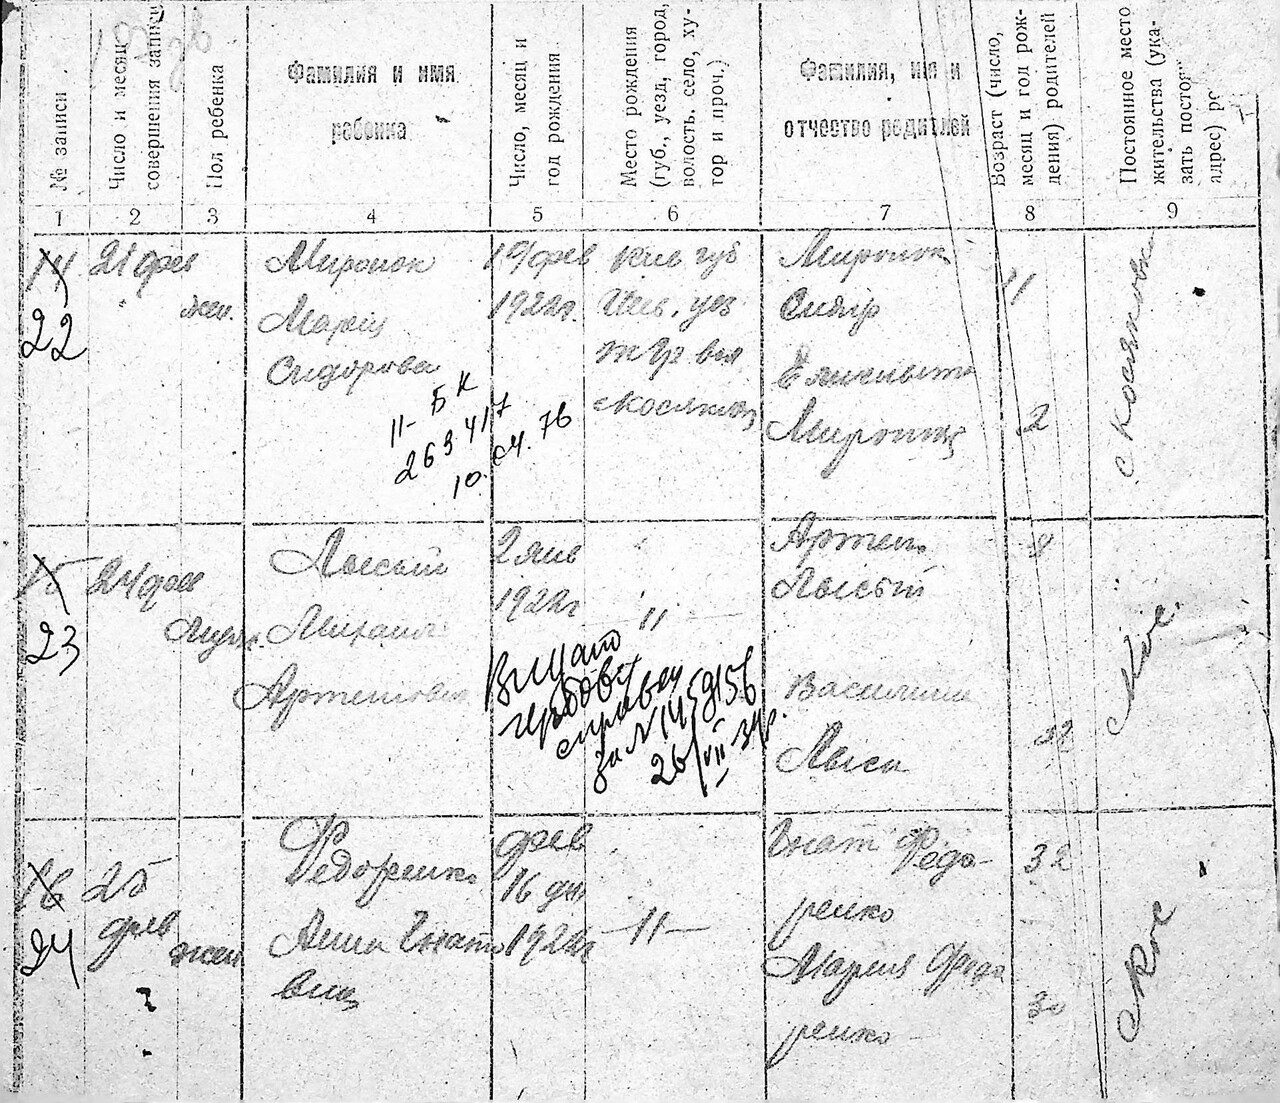 № записи
Число и месяц
совершения записи
Пол ребенка
Фамилия и имя
рабонка
Число, месяц и
год рождения
Место рождения
(губ., уезд, город,
волость, село, ху-
тор и проч.)
Фамилия, имя и
отчество родителей
Возраст (число,
месяц и год рож-
дения) родителей
Постоянное место
жительства (ука-
зать постоя
адрес)
1 2 3 4 5 6 7 8 9
14
22
21 фев
жен.
Миронюк
Мария
Сидорова
11- БК
263417
10.04.76
19 фев
1922г.
Киев губ
уез
вол
с
Миронюк
Сидір
Миронюк
2
с
15
23
24 фев
Лысый
Михаил
Артемович
2 янв
1922г
11
Видано
за N 1145
26/VII 34р.
Артем
Лысый
Василина
Лыса
с Кос.
16
24
25
фев
жен
Федоренко
Анна Гнато
вна
фев
16 дня
1922г
—11—
Гнат Федо-
ренко
Мария Федо
ренко
32
30
с Кос